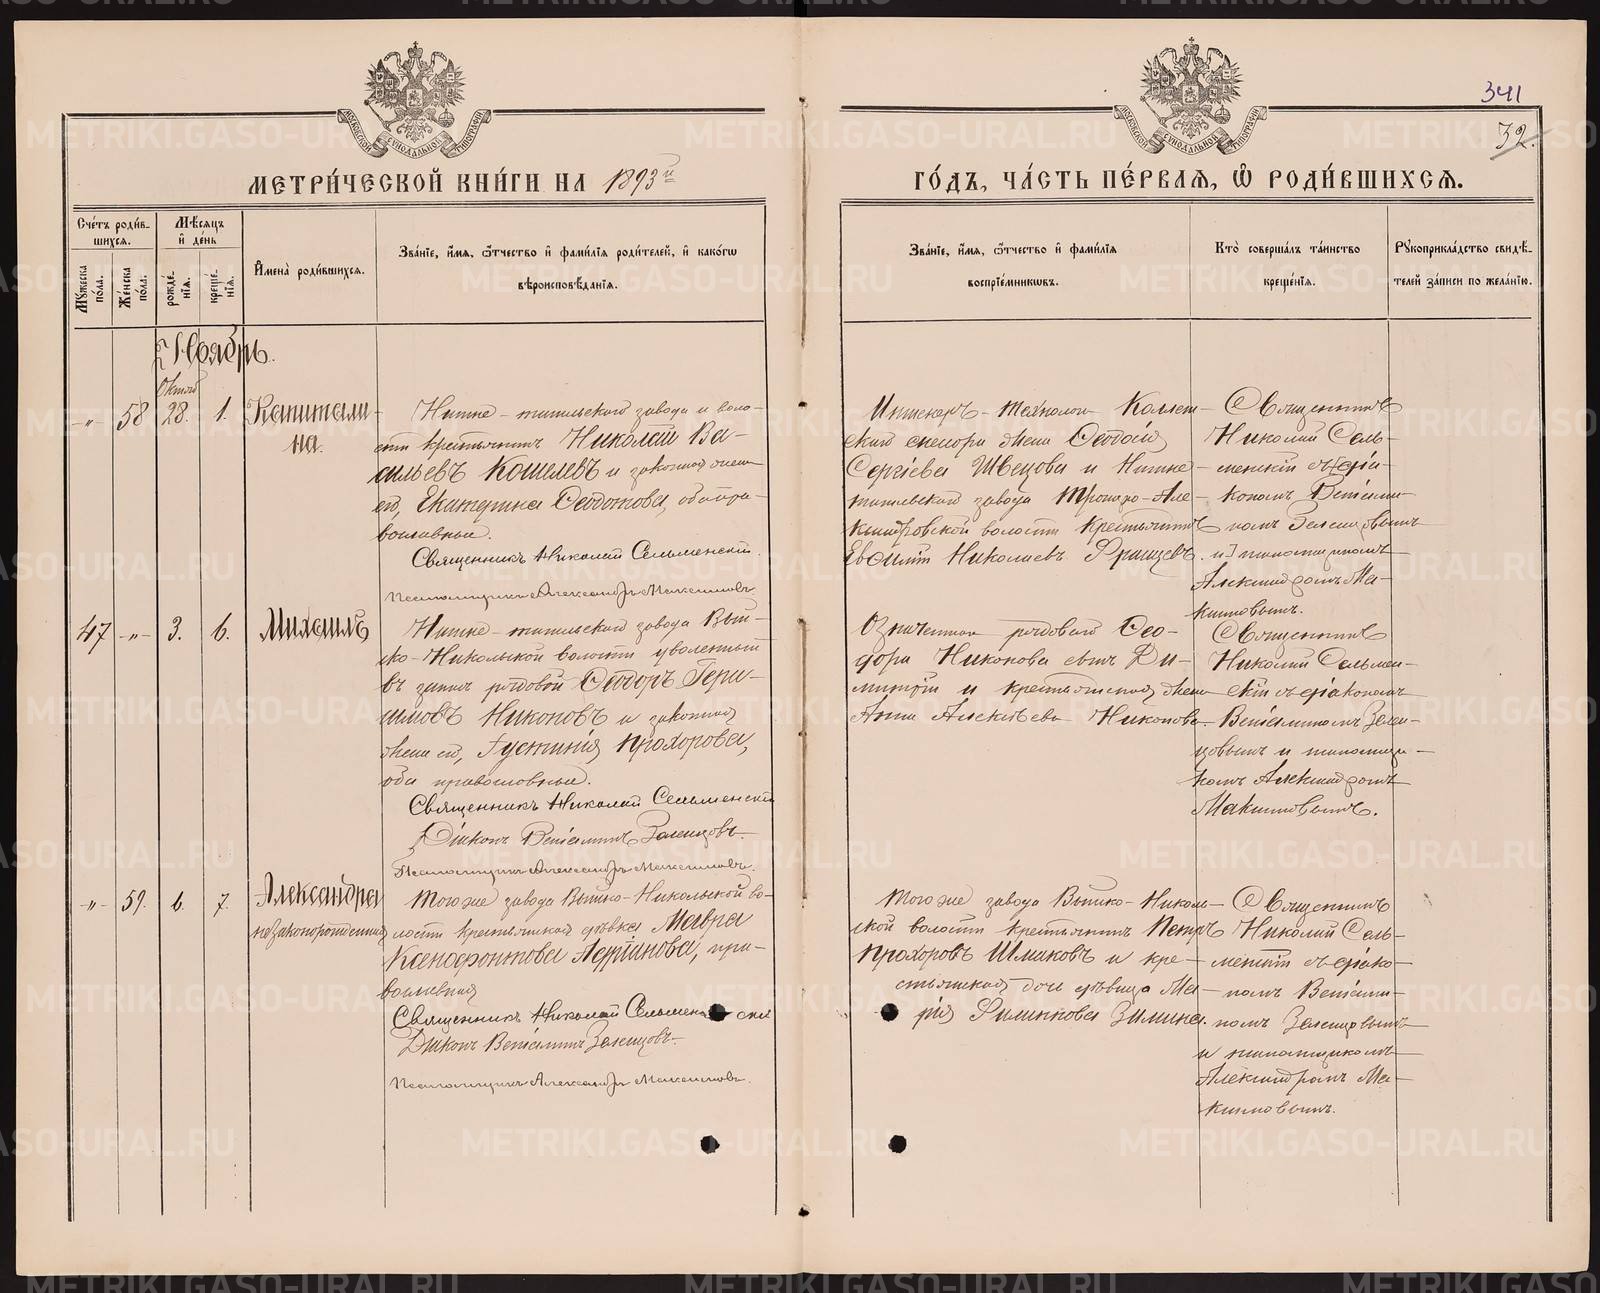 341
32.
МЕТРИ́ЧЕСКОЙ КНИ́ГИ НА 1893й
ГО́ДЪ, ЧА́СТЬ ПЕ́РВАЯ, Ѽ РОДИ́ВШИХСЯ.
Сче́тъ роди́в-
шихся.
Мѣ́сяцъ
и҆ де́нь
Мꙋ́жеска
по́ла.
Же́нска
по́ла.
рожде́-
нїя.
креще́-
нїя.
И҆мена̀ роди́вшихся.
Зва́нїе, и҆́мя, ѻ҆́тчество и҆ фами́лїя роди́телей, и҆ како́гѡ
вѣроисповѣ́данїя.
Зва́нїе, и҆́мя, ѻ҆́тчество и҆ фами́лїя
воспрїе́мникѡвъ.
Кто̀ соверша́лъ та́инство
креще́нїя.
Рꙋкоприкла́дство свидѣ́-
телей за́писи по жела́нїю.
Ноябрь.
Октяб
-„- 58 28. 1. Капитали-
на.
Нижне-тагильскаго завода и воло-
сти крестьянинъ Николай Ва-
сильевъ Кошелевъ и законная жена
его, Екатерина Ѳеодотова, оба пра-
вославные.
Священникъ Николай Сельменскій
Псаломщикъ Александръ Максимовъ
Инженеръ-технолога Коллеж-
скаго
жена
Сергіева Швецова и Нижне-
тагильскаго завода Троицко-Але-
ксандровской волости крестьянинъ
Евѳимій Николаевъ
Священникъ
Николай Сель-
менскій съ діа-
кономъ Веніами-
номъ Залещовымъ
и псаломщикомъ
Александромъ Ма-
ксимовымъ.
47 -„- 3. 6. Михаилъ
Нижне-тагильскаго завода Вый-
ско-Никольской волости уволенный
въ запасъ рядовой Ѳеодоръ Гера-
симовъ Никоновъ и законная
жена его, Іустинія Прохорова,
оба православные.
Священникъ Николай Сельменскій
Діаконъ Веніаминъ
Псаломщикъ Александръ Максимовъ.
Означеннаго рядоваго Ѳео-
дора Никонова сынъ Ди-
митрій и крестьянская жена
Анна Алексѣева Никонова.
Священникъ
Николай Сельмен-
скій съ діакономъ
Веніаминомъ
и псаломщи-
комъ Александромъ
Максимовымъ.
-„- 59. 6. 7. Александра
незаконорожденная
Того же завода Выйско-Никольской во-
лости крестьянская дѣвка Мавра
Ксенофонтова Адріанова, пра-
вославная
Священникъ Николай Сельменскій
Діаконъ Веніаминъ
Псаломщикъ Александръ Максимовъ.
Того же завода Выйско-Николь-
ской волости крестьянинъ Петръ
Прохоровъ Шмаковъ и кре-
стьянская дочь дѣвица Ма-
рія Филиппова Зимина.
Священникъ
Николай Сель-
менскій съ діако-
номъ Веніами-
номъ
и псаломщикомъ
Александромъ Ма-
ксимовымъ.
METRIKI.GASO-URAL.RU